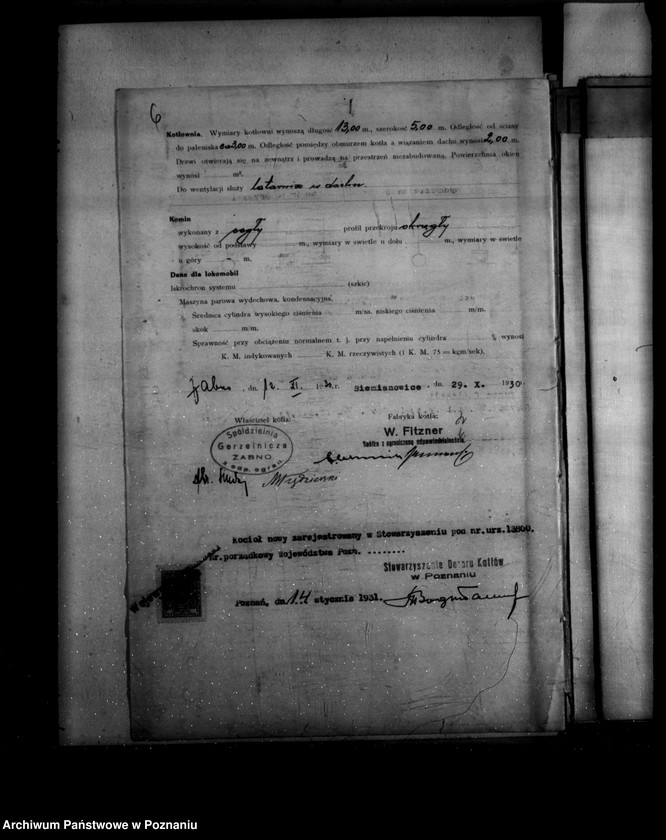 6
1
Kotłownia. Wymiary kotłowni wynoszą długość 13,00 m., szerokość 5,00 m. Odległość od ściany
do paleniska ca 3,00 m. Odległość pomiędzy obmurzem kotła a wiązaniem dachu wynosi 2,00 m.
Drzwi otwierają się na zewnątrz i prowadzą na przestrzeń niezabudowaną. Powierzchnia okien
wynosi m².
Do wentylacji służy latarnia w dachu
Komin
wykonany z cegły profil przekroju okrągły
wysokość od podstawy m., wymiary w świetle u dołu m., wymiary w świetle
u góry - m.
Dane dla lokomobil
Iskrochron systemu (szkic)
Maszyna parowa wydechowa, kondensacyjna,
Średnica cylindra wysokiego ciśnienia m/m. niskiego ciśnienia m/m.
skok m/m.
Sprawność przy obciążeniu normalnem t. j. przy napełnieniu cylindra % wynosi
K. M. indykowanych K. M. rzeczywistych (1 K. M. 75 = kgm/sek).
Żabno, dn. 12. XI. 1930 r. Siemianowice, dn. 29. X. 1930.
Właściciel kotła: Fabryka kotła:
Spółdzielnia
Gorzelnicza
ŻABNO
z odp. ogran.
W. Fitzner
Spółka z ograniczoną odpowiedzialnością
Kocioł nowy zarejestrowany w Stowarzyszeniu pod nr. urz. 13800.
Nr. porządkowy Województwa Pozn. ........
Stowarzyszenie Dozoru Kotłów
w Poznaniu
Poznań, dn. 14 stycznia 1931.
Archiwum Państwowe w Poznaniu